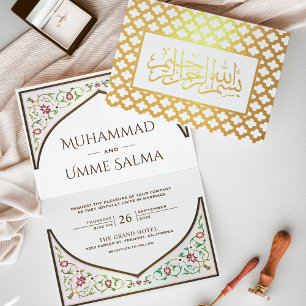 بسم الله الرحمن الرحيم
MUHAMMAD
AND
UMME SALMA
REQUEST THE PLEASURE OF YOUR COMPANY
AS THEY JOYFULLY UNITE IN MARRIAGE
THURSDAY 26 SEPTEMBER
THE GRAND HOTEL
FREMONT, CALIFORNIA
RECEPTION TO FOLLOW